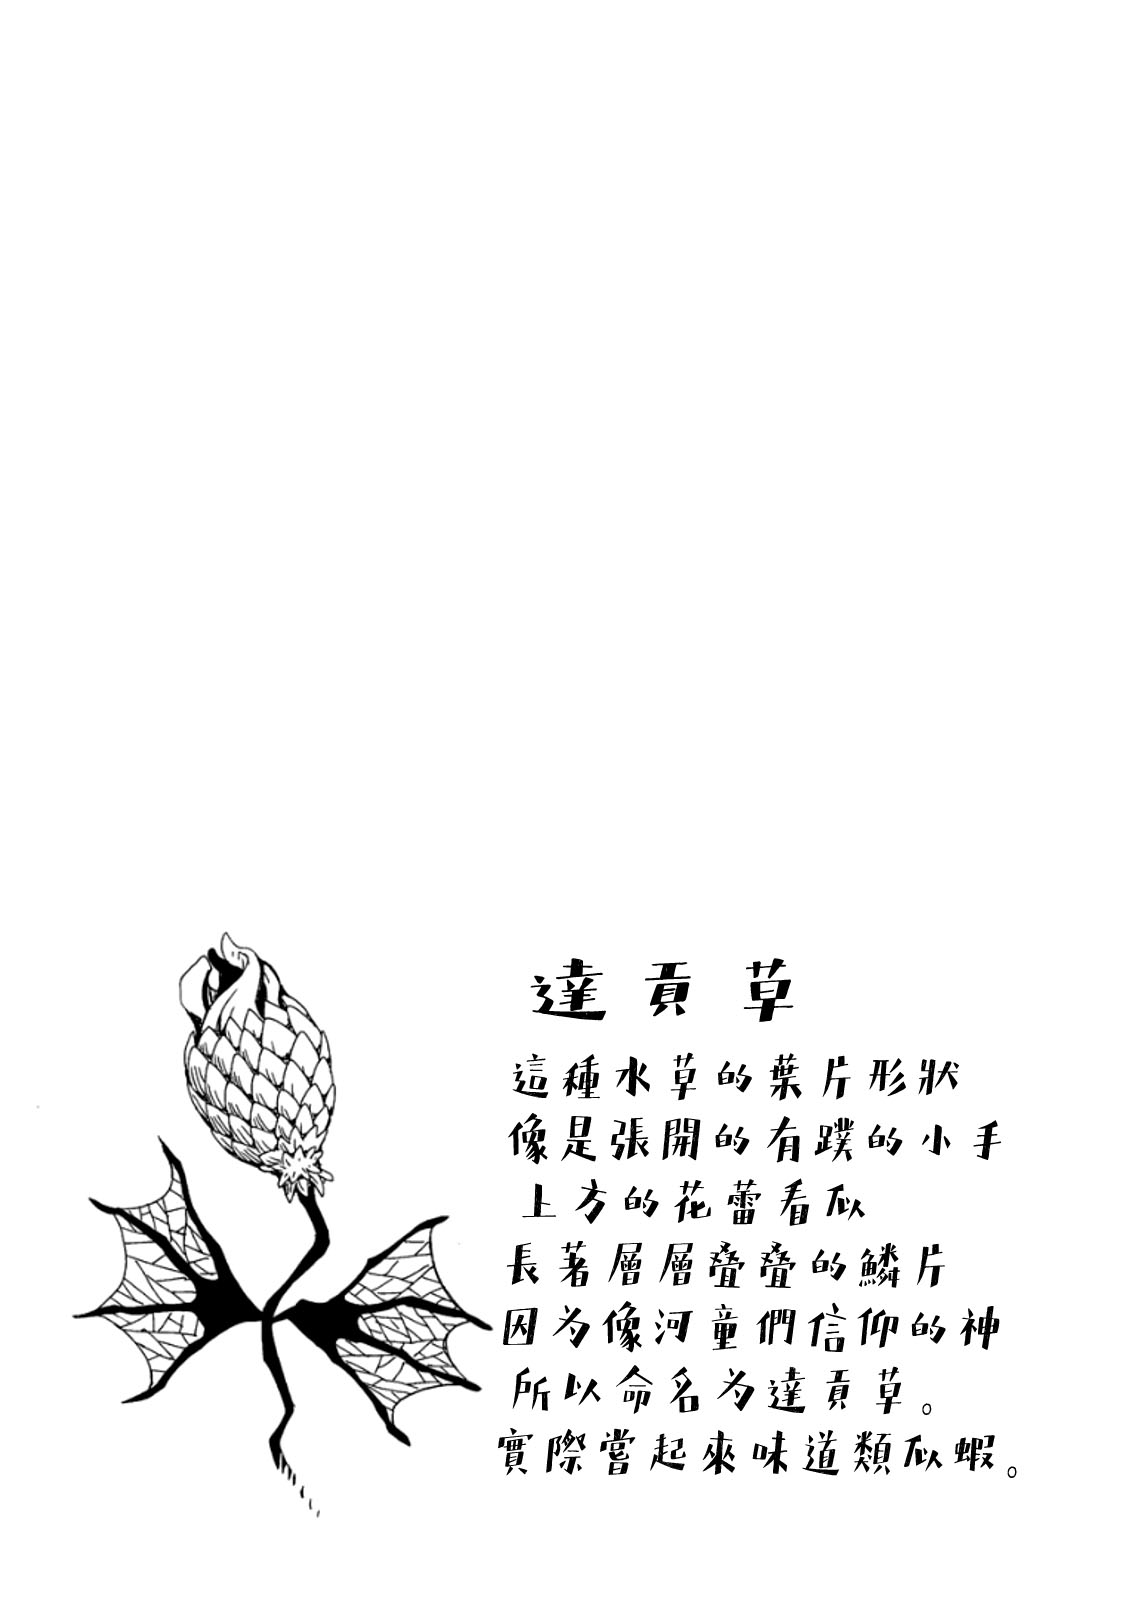 達貢草
這種水草的葉片形狀
像是張開的有蹼的小手
上方的花蕾看似
長著層層疊疊的鱗片
因为像河童們信仰的神
所以命名为達貢草。
實際嘗起來味道類似蝦。